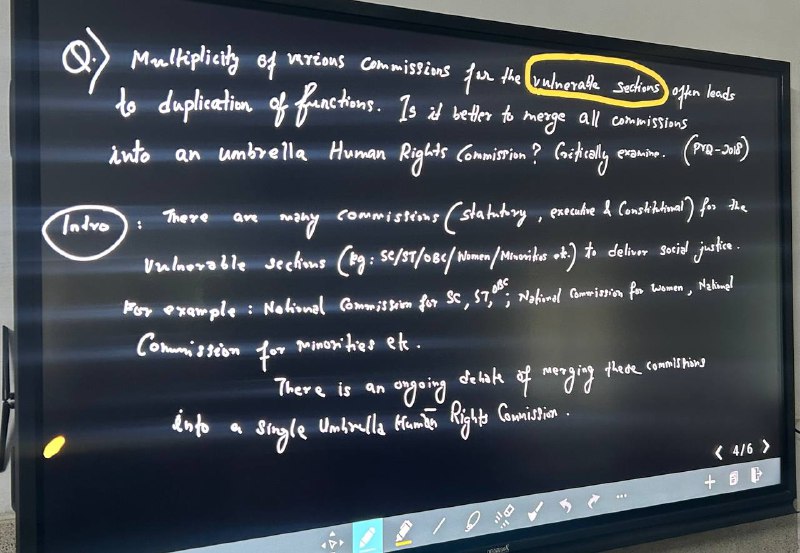 Q.) Multiplicity of various commissions for the vulnerable sections often leads
to duplication of functions. Is it better to merge all commissions
into an umbrella Human Rights Commission? Critically examine. (PYQ-2018)
Intro : There are many commissions (statutory, executive & Constitutional) for the
vulnerable sections (Eg: SC/ST/OBC/Women/Minorities etc.) to deliver social justice.
For example : National Commission for SC, ST, OBC ; National Commission for women, National
Commission for minorities etc.
There is an ongoing debate of merging these commissions
into a single Umbrella Human Rights Commission.
< 4/6 >